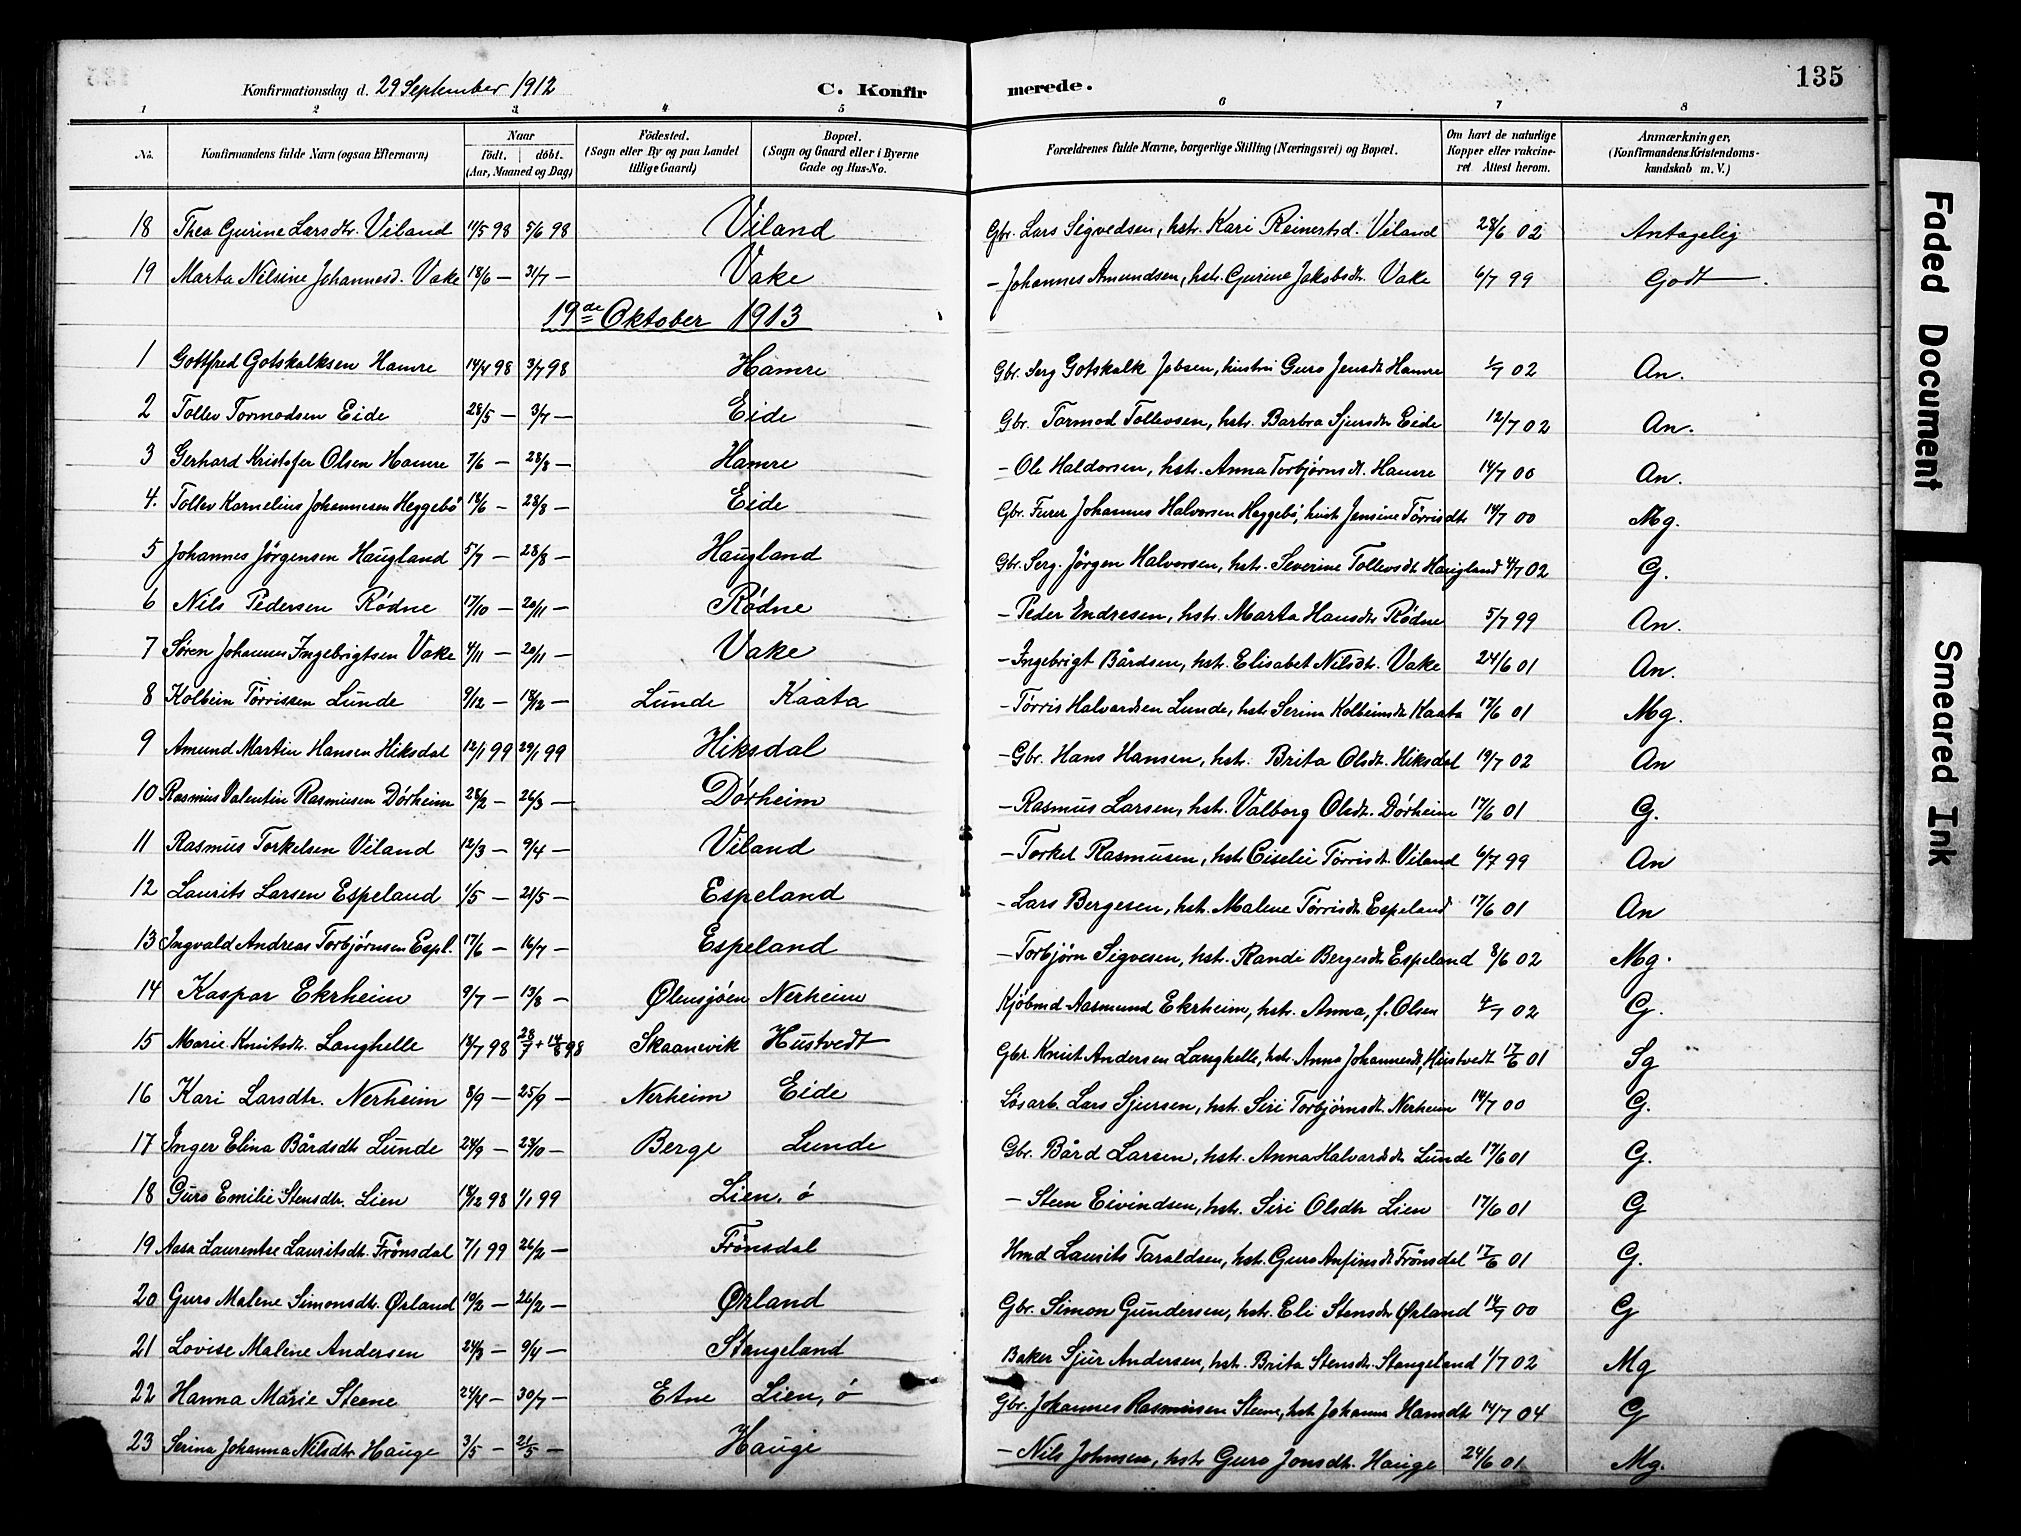 Konfirmationsdag d. 29 September 1912 C. Konfirmerede. 135
1 2 3 4 5 6 7 8
No. Konfirmandens fulde Navn (ogsaa Efternavn) Naar födt. döbt. (Aar, Maaned og Dag) Födested. (Sogn eller By og paa Landet tillige Gaard) Bopæl. (Sogn og Gaard eller i Byerne Gade og Hus-No. Forældrenes fulde Navne, borgerlige Stilling (Næringsvei) og Bopæl. Om havt de naturlige Kopper eller vakcineret Attest herom. Anmærkninger, (Konfirmandens Kristendomskundskab m. V.)
18 Thea Gurine Larsdtr. Viland 11/5 98 5/6 98 Viland Gbr. Lars Sigvedsen, hstr. Kari Reinertsd. Viland 28/6 02 Antagelig
19 Marta Nilsine Johannesd. Vake 18/6 — 31/7 — Vake — Johannes Amundsen, hstr. Gurine Jakobsdtr. Vake 6/7 99 Godt
19de Oktober 1913
1 Gottfred Gotskalksen Hamre 14/4 98 3/7 98 Hamre Gbr. Serg Gotskalk Jobsen, hustru Guro Jensdtr Hamre 1/7 02 An.
2 Tollev Tormodsen Eide 28/5 — 3/7 — Eide Gbr. Tormod Tollevsen, hstr. Barbra Sjursdtr Eide 12/7 02 An.
3 Gerhard Kristofer Olsen Hamre 7/6 — 28/8 — Hamre — Ole Haldorsen, hstr. Anna Torbjørnsdt. Hamre 14/7 00 An.
4. Tollev Kornelius Johannesen Heggebö 18/6 — 28/8 — Eide Gbr. Furer Johannes Halvorsen Heggebö, hust. Jensine Törrisdtr 14/7 00 Mg.
5 Johannes Jörgensen Haugland 5/7 — 28/8 — Haugland Gbr. Serg. Jörgen Halvorsen, hstr. Severine Tollevsdtr Haugland 4/7 02 G.
6 Nils Pedersen Rödne 17/10 — 20/11 — Rödne — Peder Endresen, hstr. Marta Hansdtr Rödne 5/7 99 An.
7 Søren Johannes Ingebrigtsen Vake 4/11 — 20/11 — Vake — Ingebrigt Bårdsen, hstr. Elisabet Nilsdtr. Vake 24/6 01 An.
8 Kolbein Törrissen Lunde 9/12 — 18/12 — Lunde Kaata — Törris Halvardsen Lunde, hstr Serina Kolbeinsdtr Kaata 17/6 01 Mg.
9 Amund Martin Hansen Hiksdal 12/1 99 29/1 99 Hiksdal — Gbr. Hans Hansen, hstr. Brita Olsdtr. Hiksdal 19/7 02 An
10 Rasmus Valentin Rasmusen Dörheim 28/2 — 26/3 — Dörheim — Rasmus Larsen, hstr. Valborg Olsdtr. Dörheim 17/6 01 G.
11 Rasmus Torkelsen Viland 12/3 — 9/4 — Viland — Torkel Rasmusen, hstr Ciselie Törrisdtr. Viland 6/7 99 An
12 Laurits Larsen Espeland 1/5 — 21/5 — Espeland — Lars Bergesen, hstr. Malene Törrisdtr Espeland 17/6 01 An
13 Ingvald Andreas Torbjörnsen Espl. 17/6 — 16/7 — Espeland — Torbjörn Sigvesen, hstr. Randi Bergesdtr Espeland 8/6 02 Mg.
14 Kaspar Ekrheim 9/7 — 13/8 — Ølensjöen Nerheim Kjöbmd Aasmund Ekrheim, hstr. Anna, f. Olsen 4/7 02 G.
15 Marie Knutsdtr. Langhelle 18/7 98 23/7 + 14/8 98 Skaanevik Hustvedt Gbr. Knut Andersen Langhelle, hstr. Anna Johannesdt, Hustvedt 17/6 01 Sg
16 Kari Larsdtr. Nerheim 8/9 — 25/9 — Nerheim Eide Lösarb. Lars Sjursen, hstr. Siri Torbjörnsdtr. Nerheim 14/7 00 G.
17 Inger Elina Bårdsdtr Lunde 24/9 — 23/10 — Berge Lunde Gbr. Bård Larsen, hstr. Anna Halvardsdtr Lunde 17/6 01 G.
18 Guro Emilie Stensdtr. Lien 18/12 98 1/1 99 Lien, ö — Steen Eivindsen, hstr. Siri Olsdtr Lien 17/6 01 G
19 Aasa Laurentse Lauritsdtr. Frönsdal 7/1 99 26/2 — Frönsdal Hmd Laurits Taraldsen, hstr. Guro Anfinsdt Frönsdal 17/6 01 G.
20 Guro Malene Simonsdtr. Ørland 19/2 — 26/2 — Ørland Gbr. Simon Gundersen, hstr. Eli Stensdtr Ørland 14/7 00 G
21 Lovise Malene Andersen 24/3 — 9/4 — Stangeland Baker Sjur Andersen, hstr. Brita Stensdtr. Stangeland 1/7 02 Mg
22 Hanna Marie Steene 24/4 — 30/7 — Etne Lien, ö Gbr. Johannes Rasmusen Steene, hstr Johanna Hansdtr 14/7 04 G
23 Serina Johanna Nilsdtr Hauge 3/5 — 21/5 — Hauge — Nils Johnsen, hstr Guro Jonsdtr. Hauge 24/6 01 Mg.
Faded Document
Smeared Ink